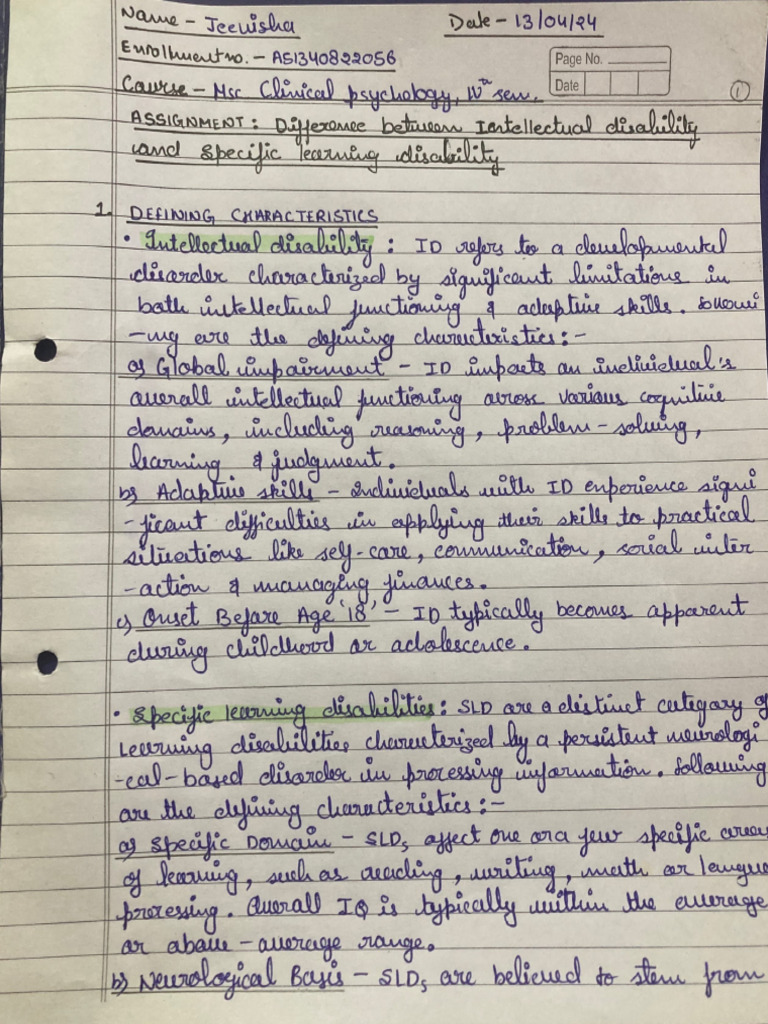 Name - Jeevisha Date - 13/04/24
Enrollment no. - A51340822056
Page No.
Date
Course - Msc Clinical psychology, IVth sem. 1
ASSIGNMENT : Difference between Intellectual disability
and specific learning disability
1. DEFINING CHARACTERISTICS
• Intellectual disability : ID refers to a developmental
disorder characterized by significant limitations in
both intellectual functioning & adaptive skills. Followi
-ng are the defining characteristics :-
a) Global impairment - ID impacts an individual's
overall intellectual functioning across various cognitive
domains, including reasoning, problem-solving,
learning & judgment.
b) Adaptive skills - Individuals with ID experience signi
-ficant difficulties in applying their skills to practical
situations like self-care, communication, social inter
-action & managing finances.
c) Onset Before Age '18' - ID typically becomes apparent
during childhood or adolescence.
• Specific learning disabilities : SLD are a distinct category of
learning disabilities characterized by a persistent neurologi
-cal-based disorder in processing information. Following
are the defining characteristics :-
a) Specific Domain - SLDs affect one or a few specific areas
of learning, such as reading, writing, math or langua
processing. Overall IQ is typically within the average
or above-average range.
b) Neurological Basis - SLDs are believed to stem from